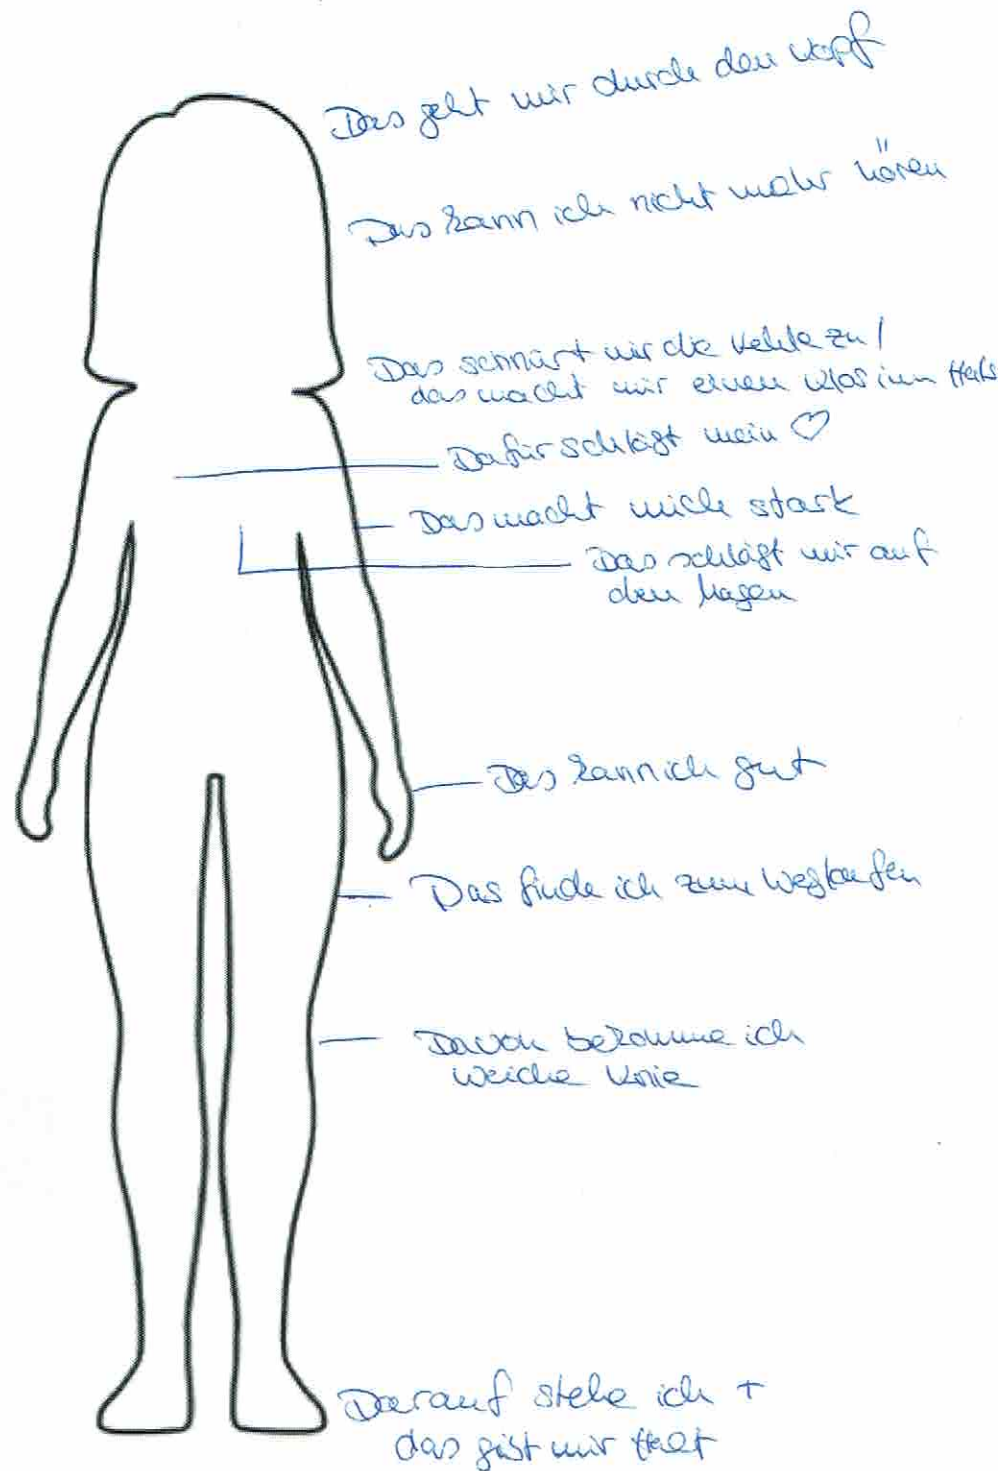 Das geht mir durch den Kopf
Das kann ich nicht mehr hören
Das schnürt mir die Kehle zu /
das macht mir einen Klos im Hals
Dafür schlägt mein ♡
Das macht mich stark
Das schlägt mir auf
den Magen
Das kann ich gut
Das finde ich zum Weglaufen
Davon bekomme ich
weiche Knie
Darauf stehe ich +
das gibt mir Halt